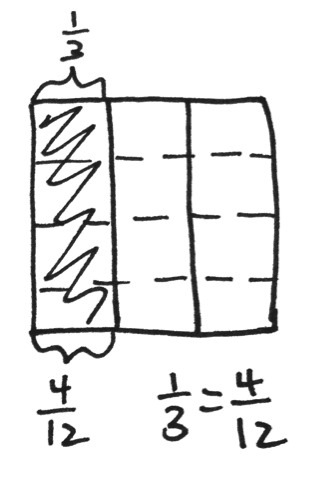 1/3
4/12
1/3 = 4/12